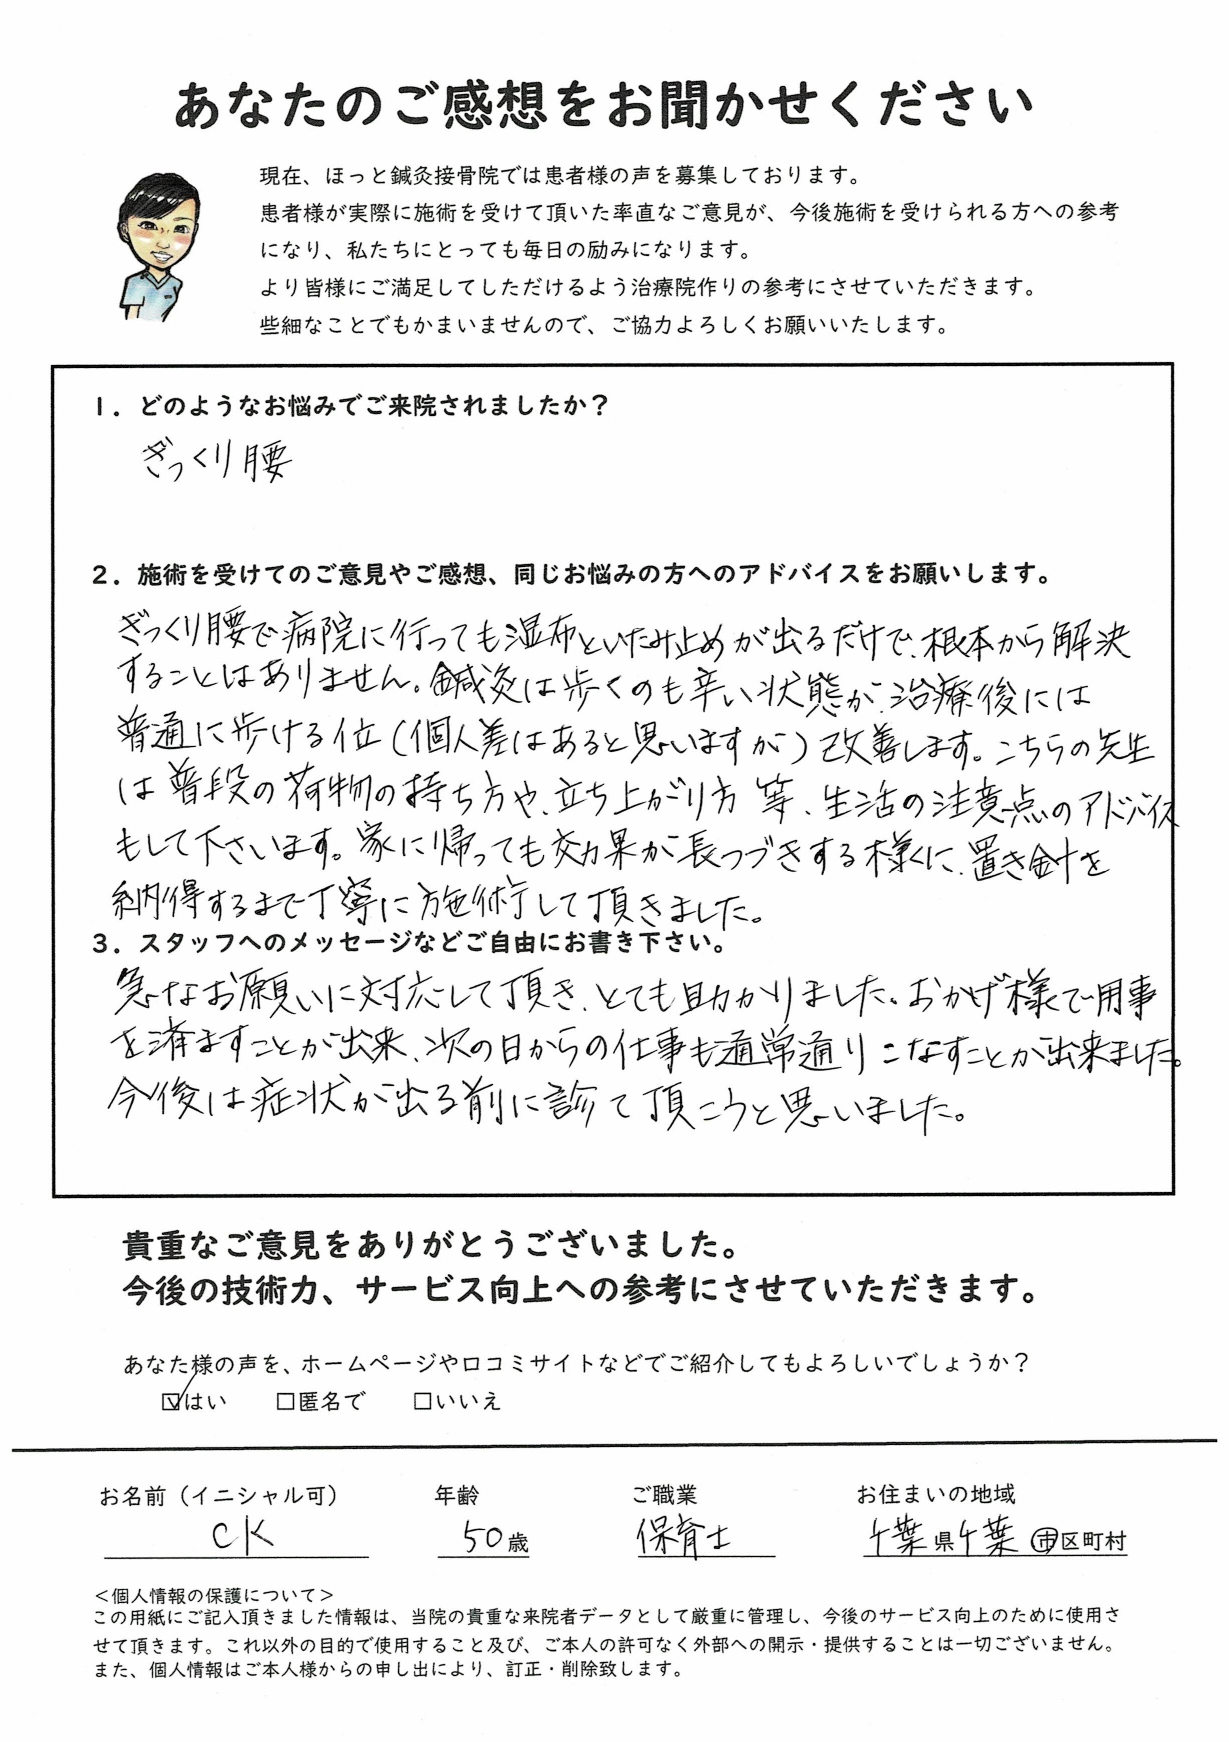 あなたのご感想をお聞かせください
現在、ほっと鍼灸接骨院では患者様の声を募集しております。
患者様が実際に施術を受けて頂いた率直なご意見が、今後施術を受けられる方への参考
になり、私たちにとっても毎日の励みになります。
より皆様にご満足してしただけるよう治療院作りの参考にさせていただきます。
些細なことでもかまいませんので、ご協力よろしくお願いいたします。
1．どのようなお悩みでご来院されましたか？
ぎっくり腰
2．施術を受けてのご意見やご感想、同じお悩みの方へのアドバイスをお願いします。
ぎっくり腰で病院に行っても湿布といたみ止めが出るだけで、根本から解決
することはありません。鍼灸は歩くのも辛い状態が、治療後には
普通に歩ける位（個人差はあると思いますが）改善します。こちらの先生
は普段の荷物の持ち方や、立ち上がり方等、生活の注意点のアドバイス
もして下さいます。家に帰っても効果が長つづきする様に、置き針を
納得するまで丁寧に施術して頂きました。
3．スタッフへのメッセージなどご自由にお書き下さい。
急なお願いに対応して頂き、とても助かりました。おかげ様で用事
を済ますことが出来、次の日からの仕事も通常通りこなすことが出来ました。
今後は症状が出る前に診て頂こうと思いました。
貴重なご意見をありがとうございました。
今後の技術力、サービス向上への参考にさせていただきます。
あなた様の声を、ホームページや口コミサイトなどでご紹介してもよろしいでしょうか？
☑はい □匿名で □いいえ
お名前（イニシャル可） 年齢 ご職業 お住まいの地域
CK 50歳 保育士 千葉県千葉㊞市区町村
＜個人情報の保護について＞
この用紙にご記入頂きました情報は、当院の貴重な来院者データとして厳重に管理し、今後のサービス向上のために使用さ
せて頂きます。これ以外の目的で使用すること及び、ご本人の許可なく外部への開示・提供することは一切ございません。
また、個人情報はご本人様からの申し出により、訂正・削除致します。